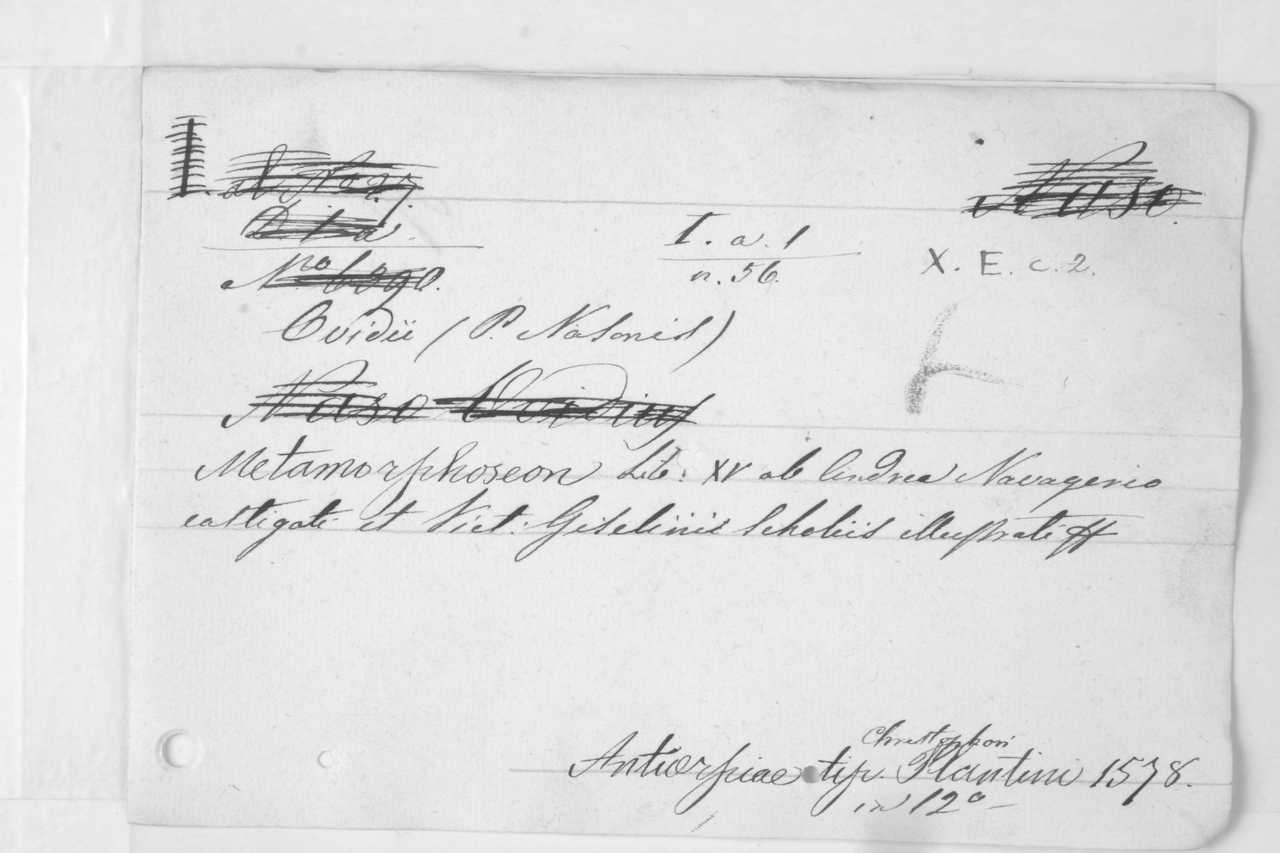 Naso.
I. a. 1
n. 56.
X. E. c. 2.
Ovidii (P. Nasonis)
Naso Ovidius
Metamorphoseon Lib: XV ab Andrea Navagerio
castigati et Vict: Giselinii Scholiis illustrati
Christophori
Antwerpiae tip. Plantini 1578.
in 12o